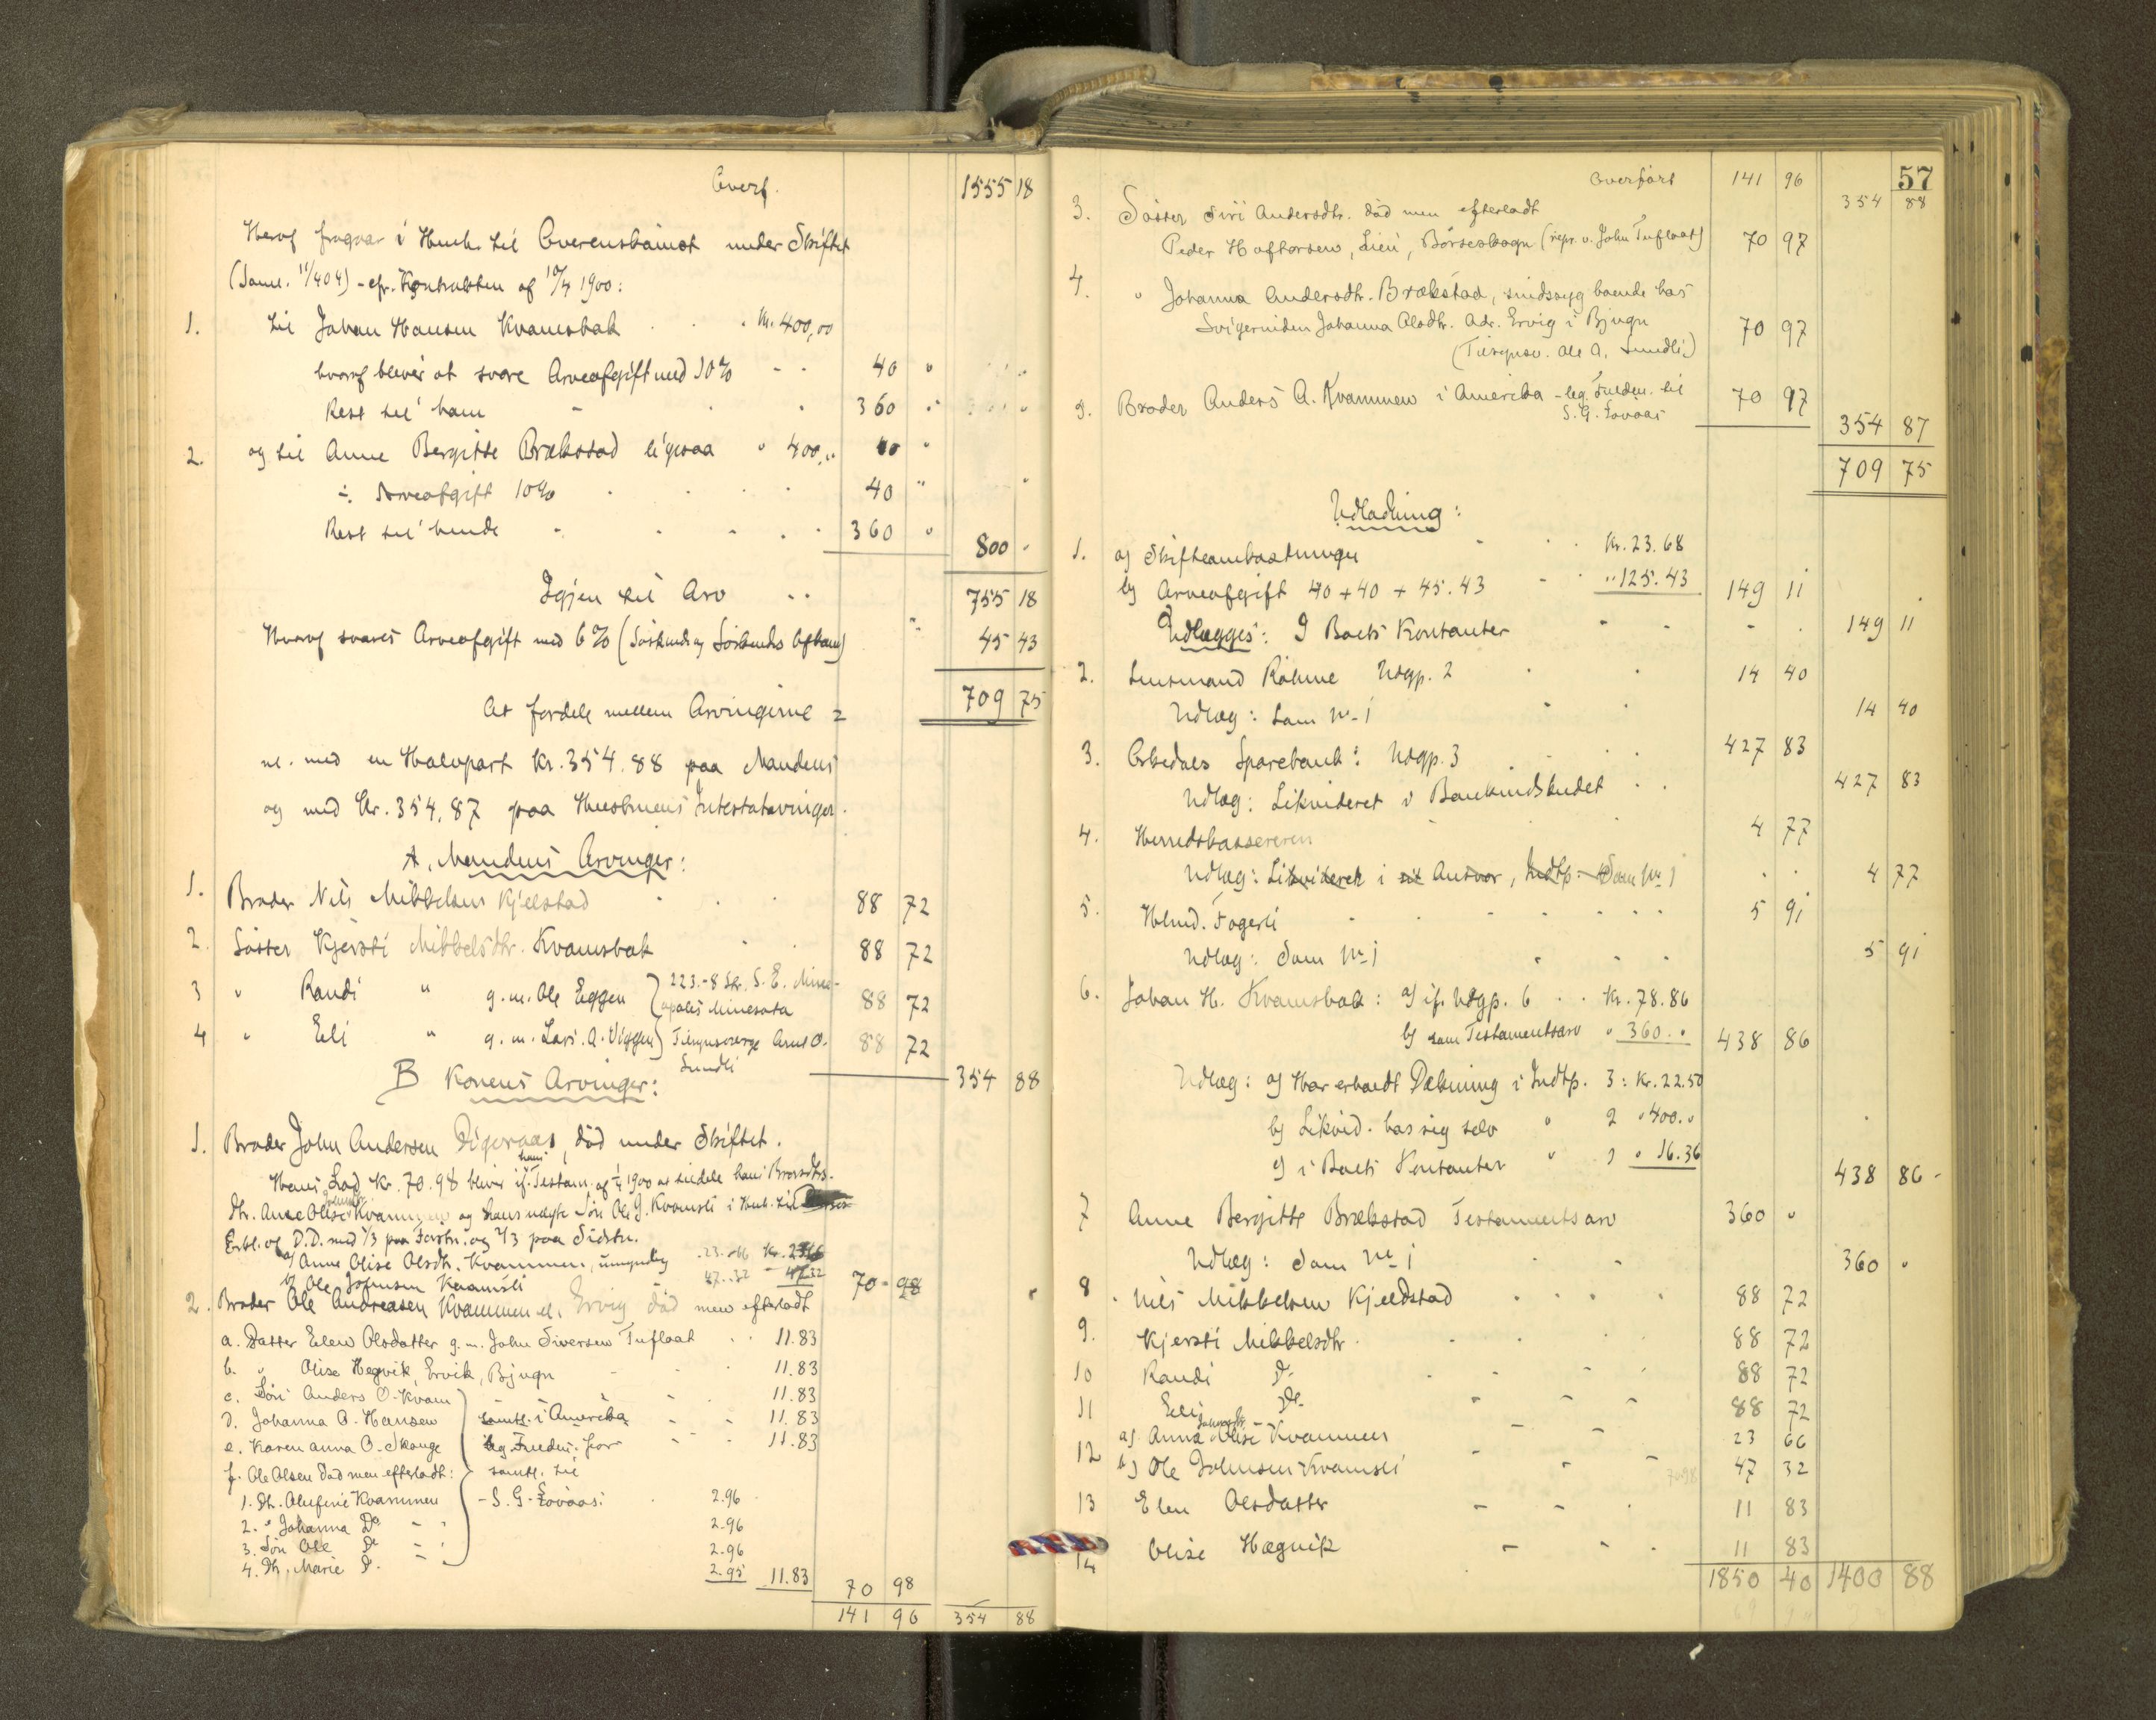 Overf. 1555 18
Herog fragaar i Henh. til Overenskomst under Skiftet
(Saml. 11/4 04) - cfr. Kontrakten af 10/4 1900:
1. til Johan Hansen Kvamsbak Kr. 400,00
hvoraf bliver at svare Arveafgift med 10% 40 "
Rest til ham 360 "
2. og til Anne Bergitte Brækstad ligesaa " 400,"
÷ Arveafgift 10% 40 "
Rest til hende 360 " 800 "
Igjen til Arv 755 18
Hvoraf svares Arveafgift med 6% (Søskend og Søskends Afkom) 45 43
At fordele mellem Arvingerne = 709 75
nl. med en Halvpart Kr. 354.88 paa Mandens
og med Kr. 354,87 paa Hustruens Intestatarvinger.
A. Mandens Arvinger:
1. Broder Nils Mikkelsen Kjelstad 88 72
2. Søster Kjersti Mikkelsdtr. Kvamsbak 88 72
3 " Randi " g. m. Ole Eggen } 223.-8 Str. S. E. Minne-
apolis Minesota 88 72
4 " Eli " g. m. Lars A. Viggen } Tilsynsværge Arnt O.
Sundli 88 72
354 88
B Konens Arvinger:
1. Broder John Andersen Digeraas, død under Skiftet.
Hans Lod Kr. 70.98 bliver if. Testam. af 1/4 1900 at tildele hans Brorsdtrs.
dtr. Anne Olise Johnsdtr. Kvammen og hans uægte Søn Ole J. Kvamsli i Henh. til
Erkl. af D.D. med 1/3 paa Førstn. og 2/3 paa Sidstn.
a) Anne Olise Olsdtr. Kvammen, umyndig 23.66 Kr. 23.66
b) Ole Johnsen Kvamsli 47.32 " 47.32 70 98
2. Broder Ole Andreasen Kvammen el. Ervig død men efterladt
a. Datter Elen Olsdatter g. m. John Siversen Tufloat 11.83
b. " Olise Hegvik, Ervik, Bjugn 11.83
c. Søn Anders O. Kvam 11.83
d. Johanna O. Hansen samtl. i Amerika 11.83
e. Karen Anna O. Skauge leg. Fuldm. for 11.83
f. Ole Olsen død men efterladt: samtl. til
1. Dtr. Olufine Kvammen - S. G. Lovaas: 2.96
2. " Johanna Do 2.96
3. Søn Ole Do 2.96
4. Dtr. Marie Do 2.95 11.83 70 98
141 96 354 88
57
Overført 141 96 354 88
3. Søster Siri Andersdtr. død men efterladt
Peder Haftorsen, Lien, Børseskogn (repr. v. John Tufloat) 70 97
4. " Johanna Andersdtr. Brækstad, sindssyg boende hos
Svigerinden Johanna Olsdtr. Adr. Ervig i Bjugn 70 97
(Tilsynsv. Ole A. Sundli)
5. Broder Anders A. Kvammen i Amerika - leg. Fuldm. til
S. G. Lovaas 70 97
354 87
709 75
Udlodning:
1. a) Skifteomkostninger Kr. 23.68
b) Arveafgift 40 + 40 + 45.43 " 125.43 149 11
Udlægges: I Boets Kontanter 149 11
2. Lensmand Rohme Udgp. 2 14 40
Udlæg: Som No 1 14 40
3. Orkedals Sparebank: Udgp. 3 427 83
Udlæg: Likvideret i Bankindskudet 427 83
4. Herredskassereren 4 77
Udlæg: Likvideret i sit Ansvar, Indtp. Som No 1 4 77
5. Hlmd. Fagerli 5 91
Udlæg: Som No 1 5 91
6. Johan H. Kvamsbak: a) if. Udgp. 6 Kr. 78.86
b) som Testamentsarv " 360." 438 86
Udlæg: a) Har erholdt Dækning i Indtp. 3: Kr. 22.50
b) Likvid. hos sig selv " 2 " 400."
c) i Boets Kontanter " 1 " 16.36
438 86
7 Anne Bergitte Brækstad Testamentsarv 360 "
Udlæg: Som No 1 360 "
8 Nils Mikkelsen Kjeldstad 88 72
9. Kjersti Mikkelsdtr. 88 72
10 Randi Do 88 72
11 Eli Do 88 72
12 a) Anna Olise Johnsdtr. Kvammen 23 66
b) Ole Johnsen Kvamsli 70.98 47 32
13 Elen Olsdatter 11 83
14 Olise Hægvik 11 83
1850 40 1400 88